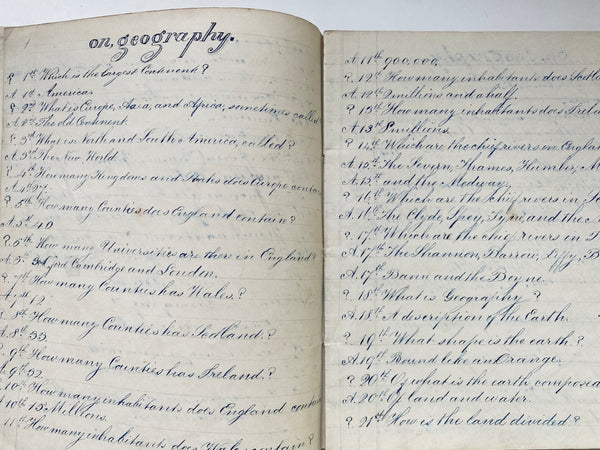 1
on, geography.
? 1st Which is the largest Continent?
A 1st America.
? 2nd What is Europe, Asia, and Africa, sometimes called
A 2nd The old Continent.
? 3rd What is North and South America, called?
A 3rd The New World.
? 4th How many Kingdoms and States does Europe contain
A 4th 27.
? 5th How many Counties does England contain?
A 5th 40.
? 6th How many Universities are there in England?
Oxford Cambridge and London.
? 7th How many Counties has Wales?
A 7th 12.
? 8th How many Counties has Scotland?
A 8th 33.
? 9th How many Counties has Ireland?
A 9th 32
? 10th How many inhabitants does England contain
A 10th 15
11th How many inhabitants does Wales contain?
A 11th 900,000.
? 12th How many inhabitants does
A 12th 2 millions and a half.
? 13th How many inhabitants does
A 13th millions.
? 14th Which are the chief rivers on England
A 15th The Severn, Thames, Humber,
A 15th and the Medway.
? 16th Which are the chief rivers in
A 16th The Clyde, Spey, and the
? 17th Which are the chief rivers in
A 17th The Shannon, Barrow, Liffy,
A 17th Bann and the Boyne.
? 18th What is Geography?
A 18th A description of the Earth.
? 19th What shape is the earth?
A 19th Round like an Orange.
? 20th Of what is the earth composed
A 20th Of land and water.
? 21st How is the land divided?